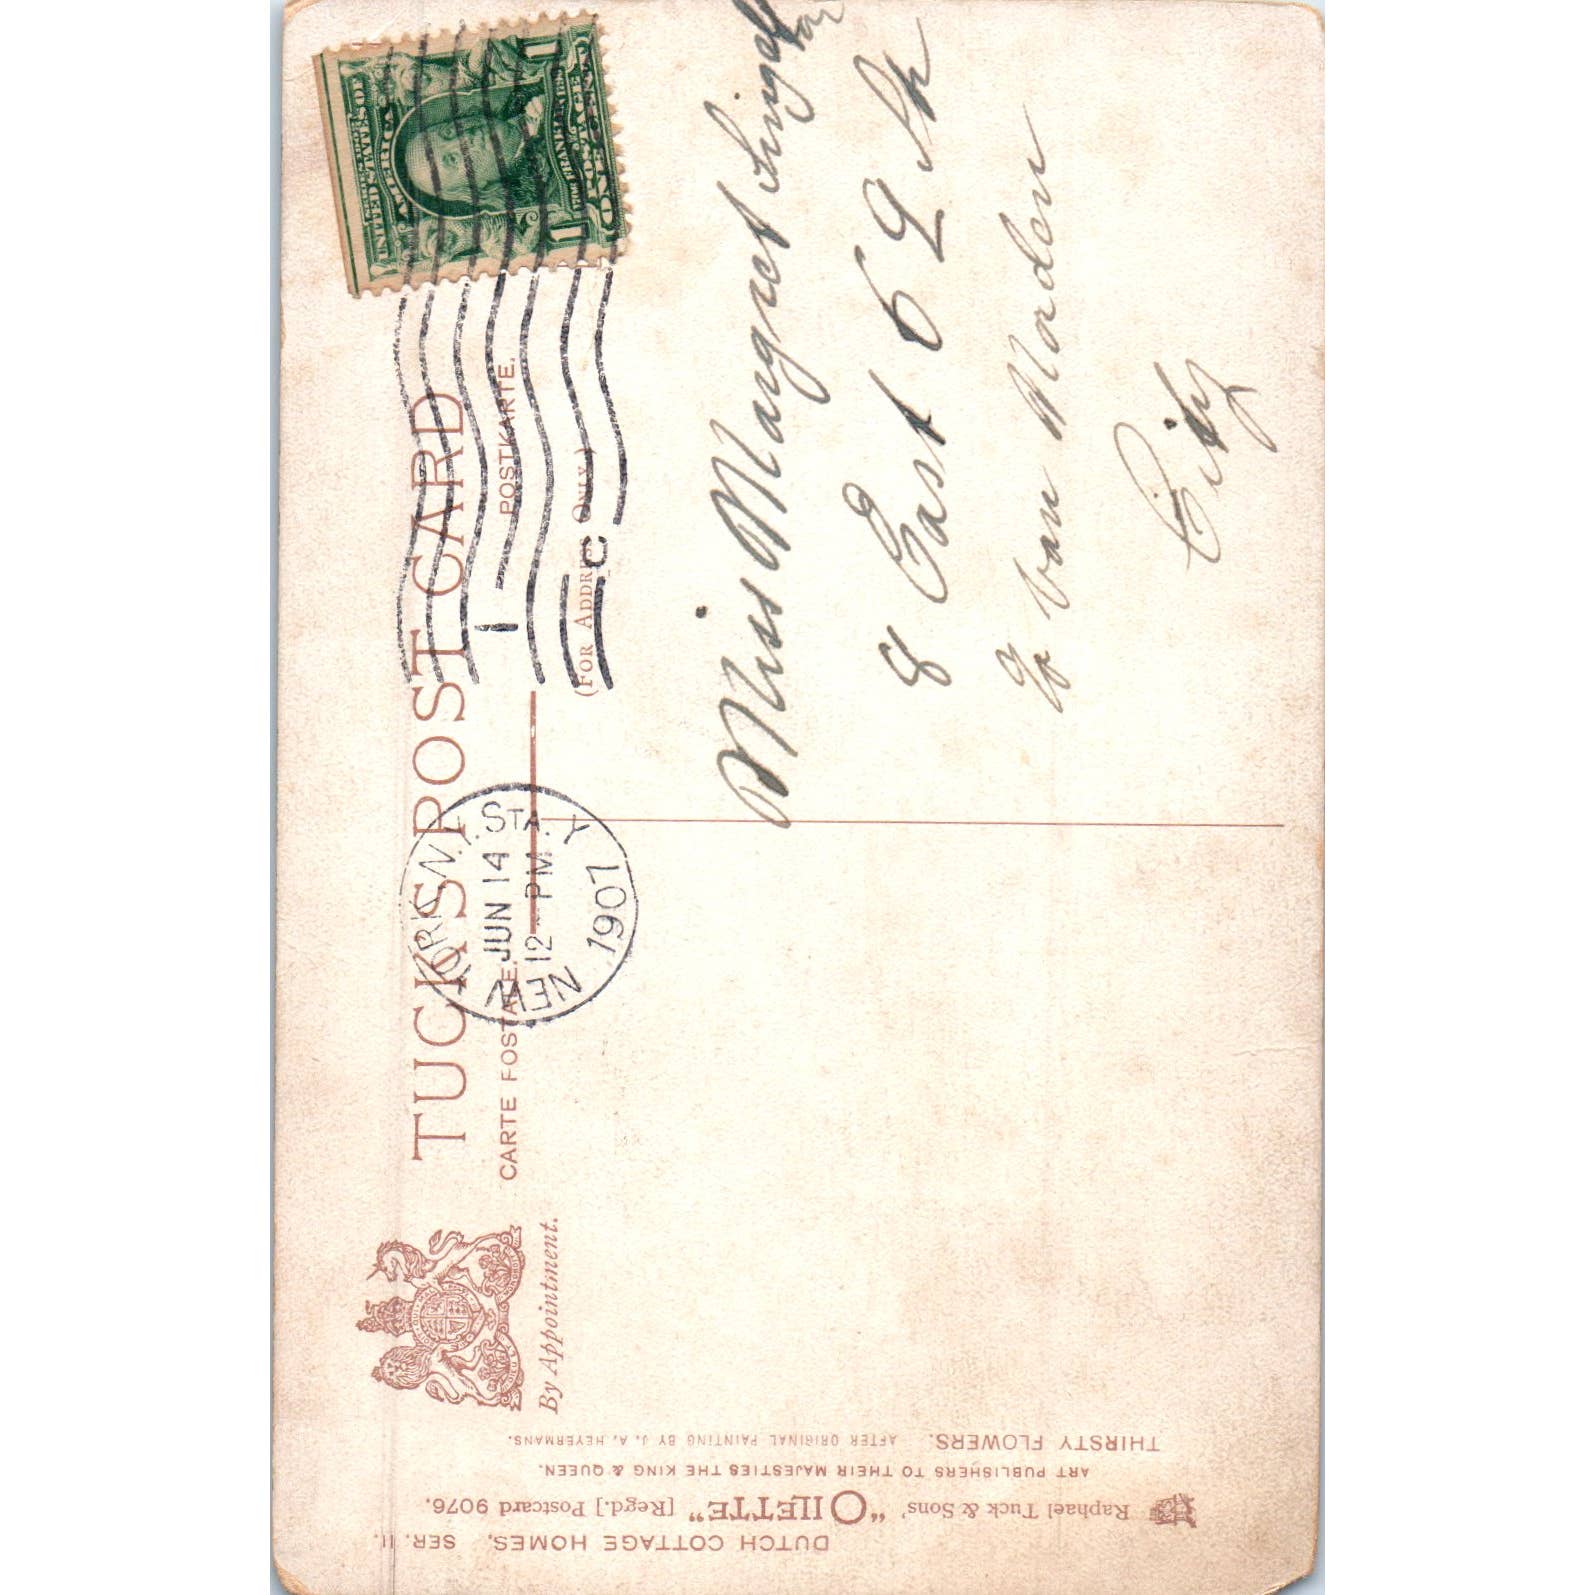 TUCK'S POST CARD
CARTE POSTALE.
POSTKARTE.
(FOR ADDRESS ONLY.)
By Appointment.
NEW YORK, N.Y. STA. Y
JUN 14
12 - PM
1907
1
C
SERIES 1902
UNITED STATES OF
AMERICA
FRANKLIN
POSTAGE
ONE CENT
1 1
Miss Margret
8 East 69 Sth
% Van Norden
City
DUTCH COTTAGE HOMES. SER. II.
Raphael Tuck & Sons' "OILETTE" [Regd.] Postcard 9076.
ART PUBLISHERS TO THEIR MAJESTIES THE KING & QUEEN.
THIRSTY FLOWERS. AFTER ORIGINAL PAINTING BY J. A. HEYERMANS.